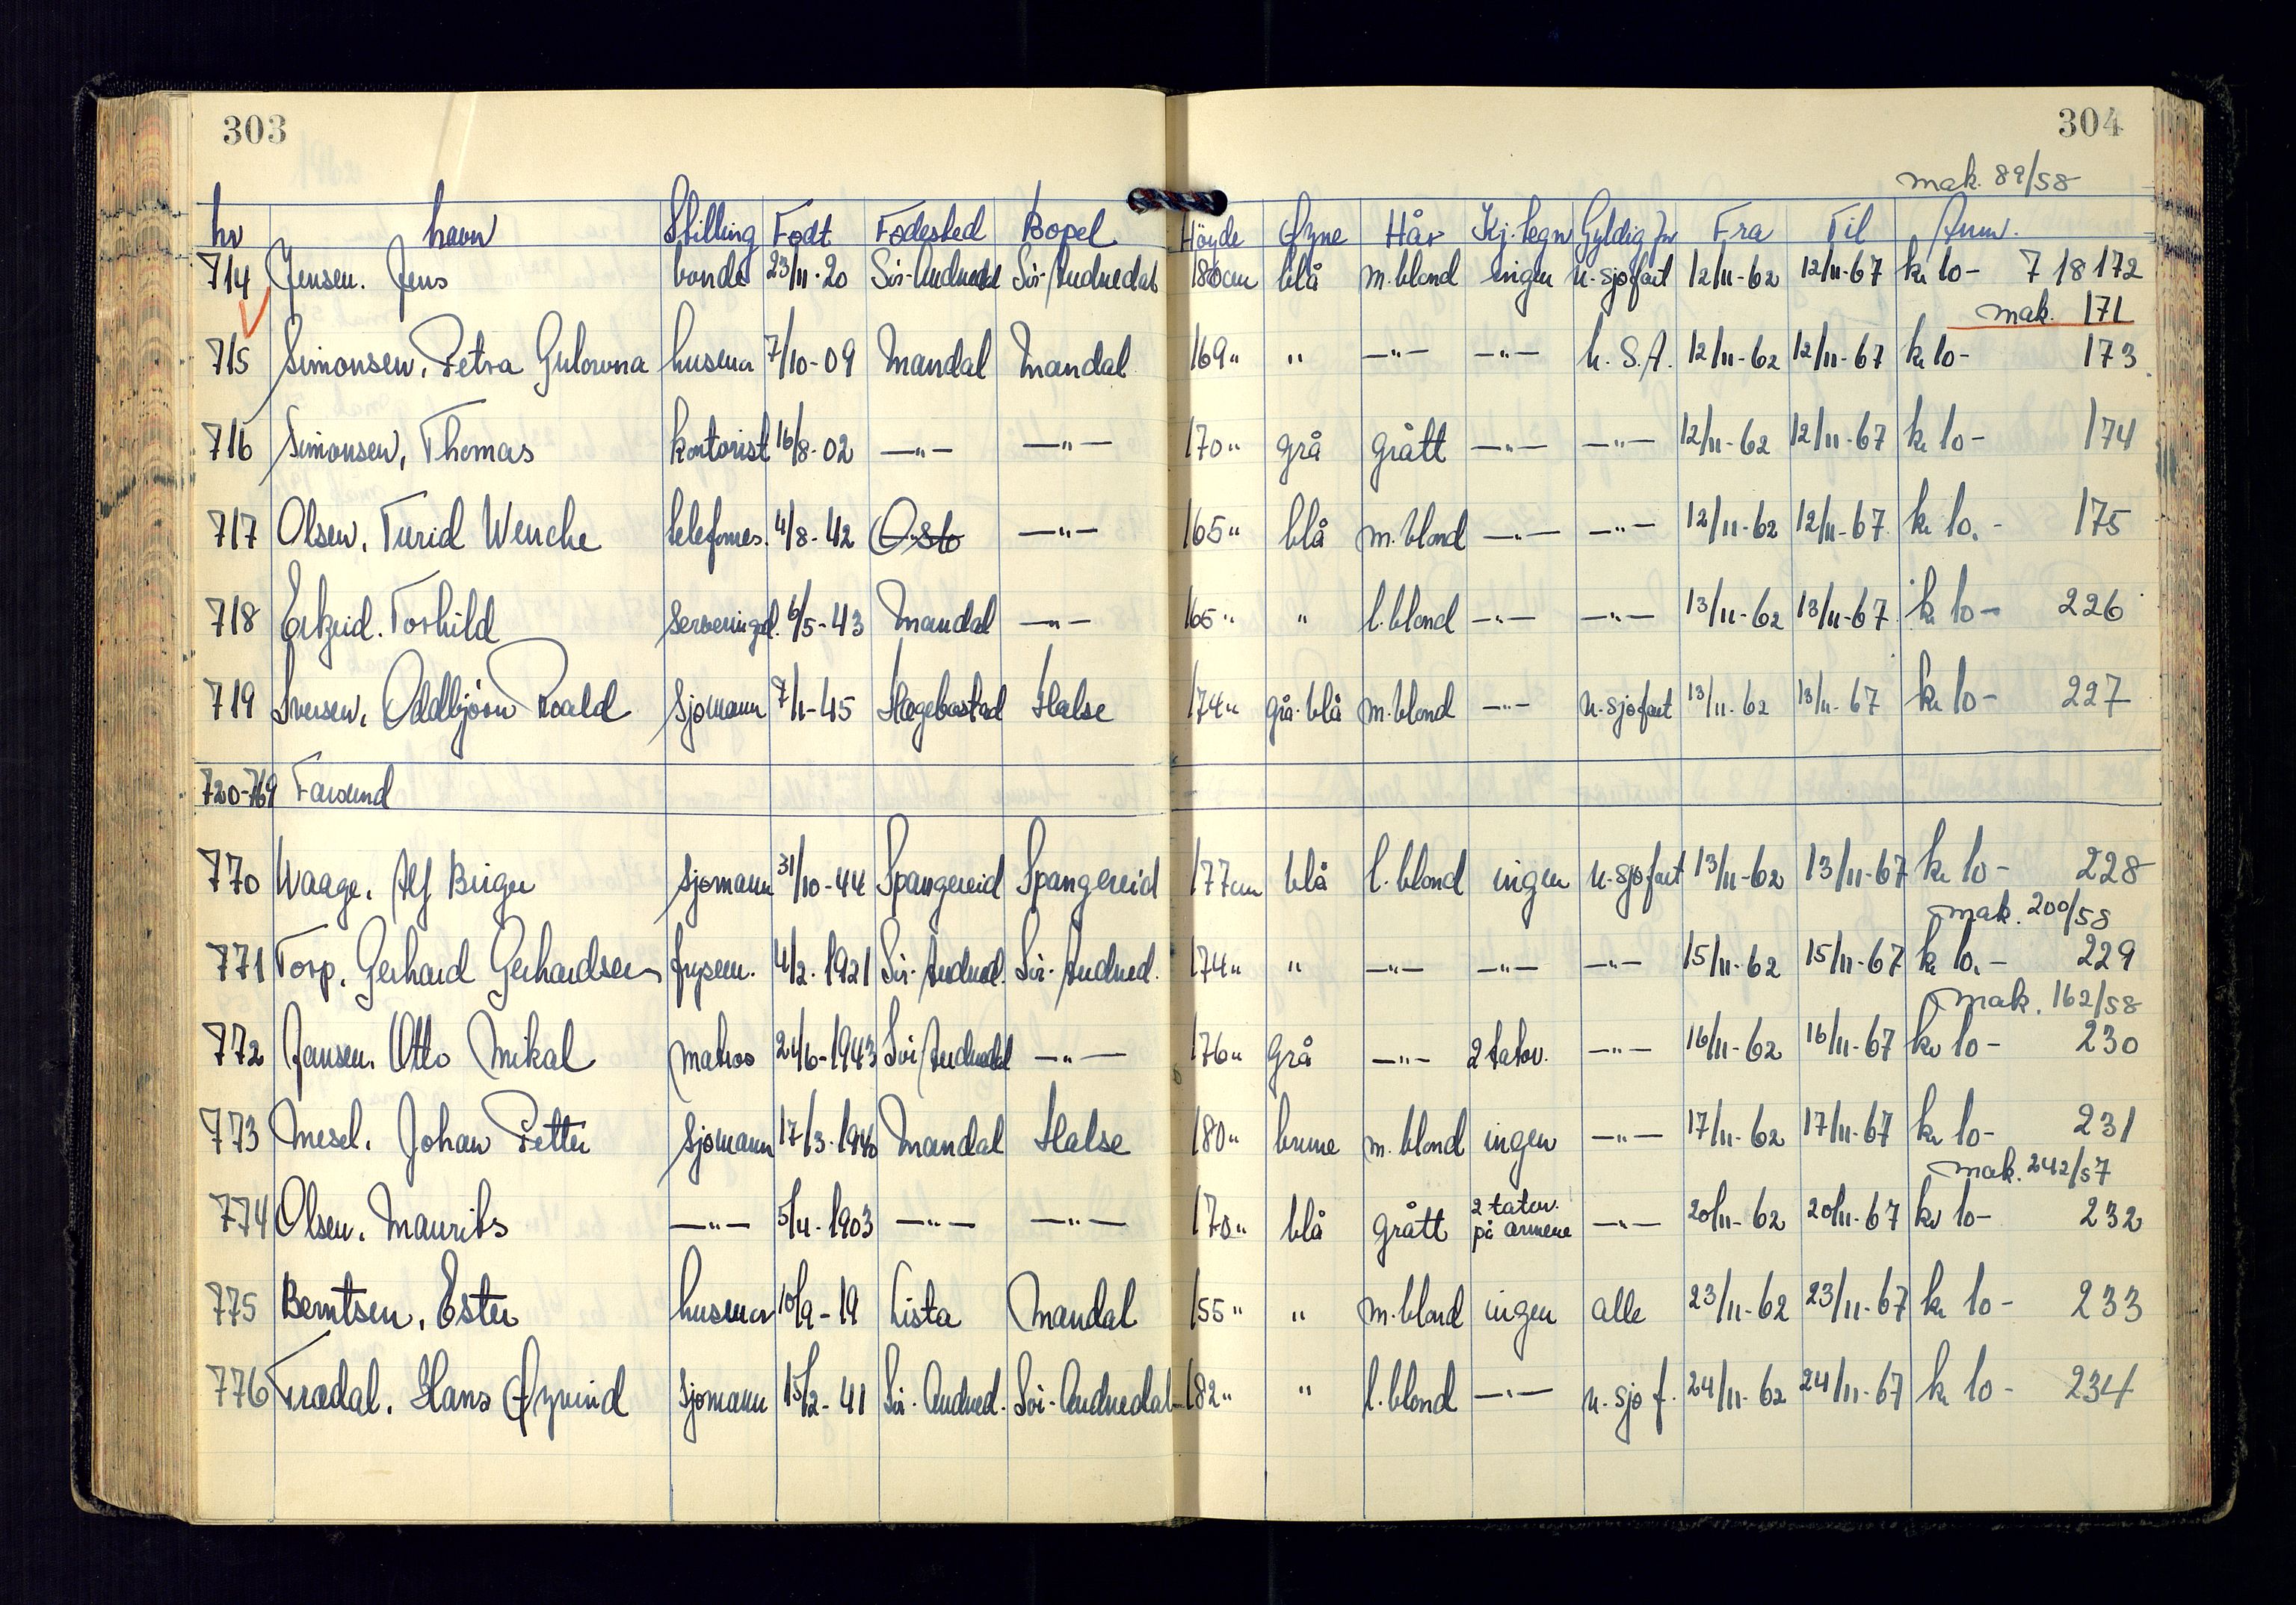 303
304
mak. 89/58
Nr Navn Stilling Født Fødested Bopel Höyde Øyne Hår Kj.tegn Gyldig for Fra Til Anm.
714 Jensen. Jens bonde 23/11-20 Sör-Audnedal Sör-Audnedal 180cm blå m.blond ingen u.sjøfart 12/11-62 12/11-67 kr 10- 718172
mak. 171
715 Simonsen, Petra Gulovna husmor 7/10-09 Mandal Mandal 169" " —"— —"— U.S.A. 12/11-62 12/11-67 kr 10- 173
716 Simonsen, Thomas kontorist 16/8-02 —"— —"— 170" grå grått —"— —"— 12/11-62 12/11-67 kr 10- 174
717 Olsen, Turid Wenche telefonis. 4/8-42 Oslo —"— 165" blå m.blond —"— —"— 12/11-62 12/11-67 kr 10.- 175
718 Torhild serveringsd. 6/5-43 Mandal —"— 165" " l.blond —"— —"— 13/11-62 13/11-67 kr 10- 226
719 Iversen, Oddbjörn Roald sjømann 7/1-45 Hægebostad Halse 174" grå-blå m.blond —"— u.sjøfart 13/11-62 13/11-67 kr 10- 227
720-769 Farsund
770 Waage, Alf Birger sjømann 31/10-44 Spangereid Spangereid 177cm blå l.blond ingen u.sjøfart 13/11-62 13/11-67 kr 10- 228
mak. 200/58
771 Torp, Gerhard Gerhardsen 4/2-1921 Sör-Audned. Sör-Audned. 174" " —"— —"— —"— 15/11-62 15/11-67 kr 10.- 229
mak. 162/58
772 Jansen, Otto Mikal matros 24/6-1943 Sör-Audnedal —"— 176" grå —"— 2 tatov. —"— 16/11-62 16/11-67 kr 10- 230
773 Mesel, Johan Petter sjømann 17/3-1940 Mandal Halse 180" brune m.blond ingen —"— 17/11-62 17/11-67 kr 10- 231
mak. 242/57
774 Olsen, Maurits —"— 5/4-1903 —"— —"— 170" blå grått 2 tatov. på armene —"— 20/11-62 20/11-67 kr 10- 232
775 Berntsen, Ester husmor 10/9-19 Lista Mandal 155" " m.blond ingen alle 23/11-62 23/11-67 kr 10- 233
776 Trædal, Hans Øyvind sjømann 15/2-41 Sör-Audned. Sör-Audnedal 182" " l.blond —"— u.sjøf. 24/11-62 24/11-67 kr 10- 234